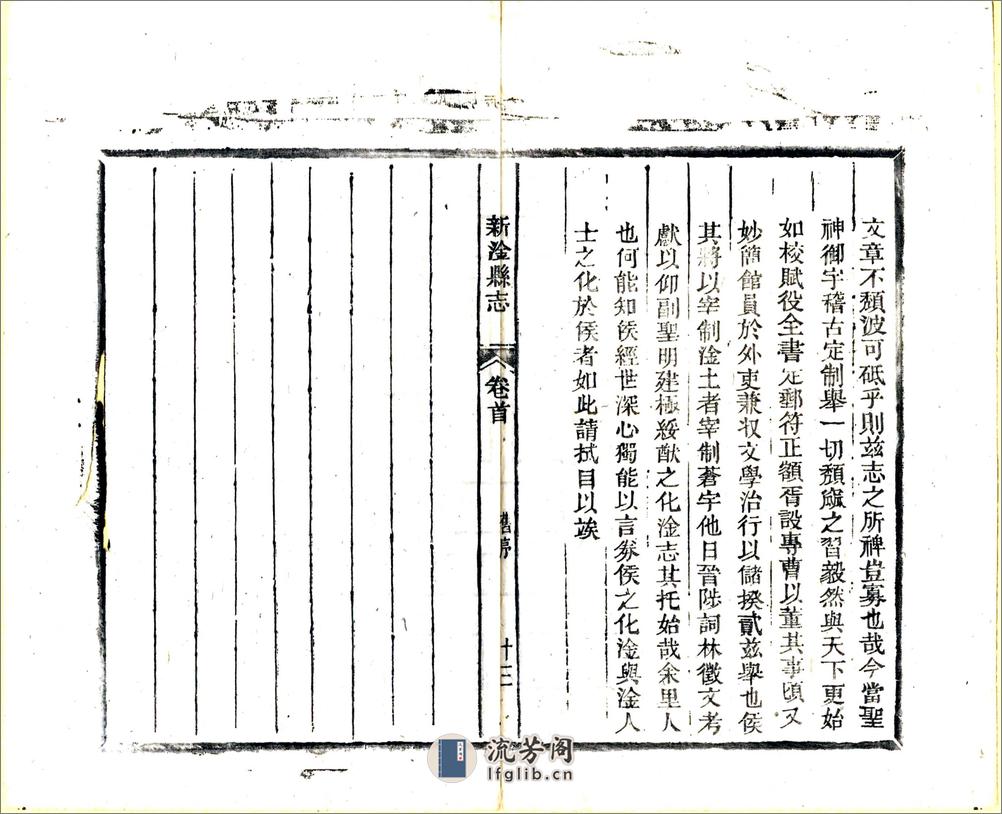 文章不頽波可砥乎則兹志之所裨豈寡也哉今當聖
神御宇稽古定制舉一切頽窳之習毅然與天下更始
如校賦役全書定郵符正額胥設專曹以董其事頃又
妙簡館員於外吏兼收文學治行以儲揆貳兹舉也侯
其將以宰制淦土者宰制蒼宇他日晉陟詞林徵文考
獻以仰副聖明建極綏猷之化淦志其托始哉余里人
也何能知侯經世深心獨能以言劵侯之化淦與淦人
士之化於侯者如此請拭目以竢
新淦縣志
卷首
舊序
十三
流芳阁
lfglib.cn